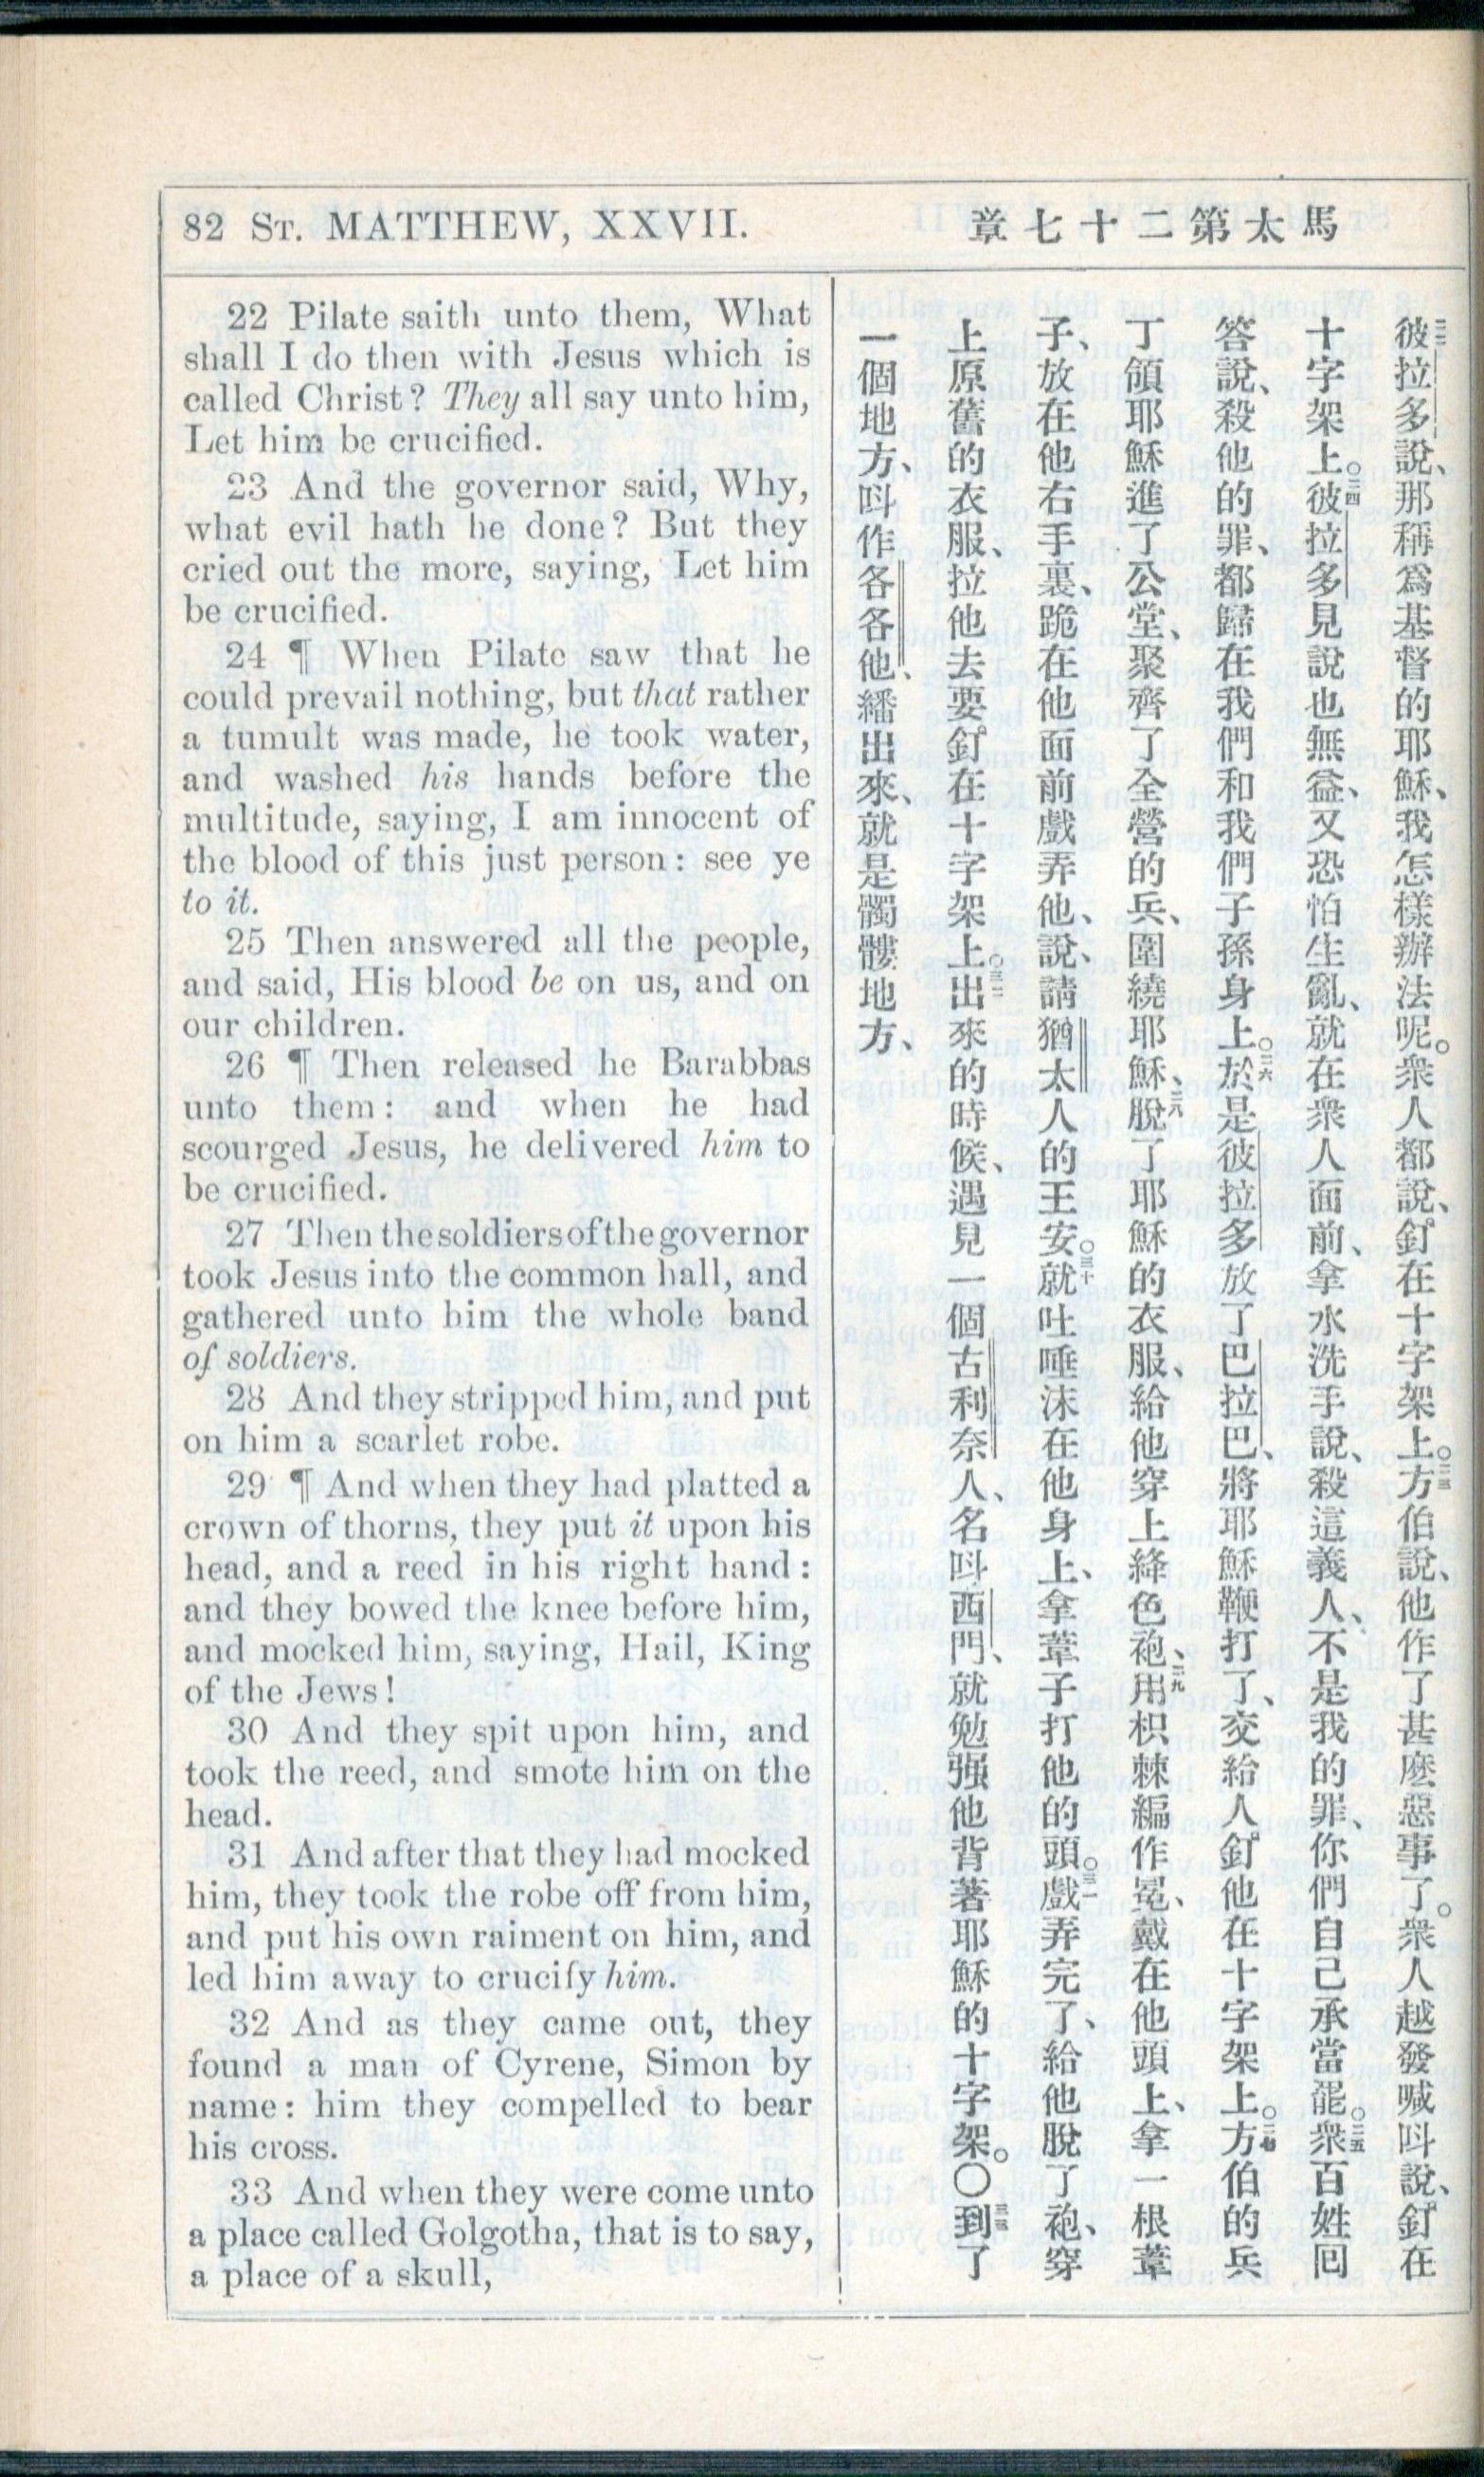 82 ST. MATTHEW, XXVII.
馬太第二十七章
22 Pilate saith unto them, What
shall I do then with Jesus which is
called Christ? They all say unto him,
Let him be crucified.
23 And the governor said, Why,
what evil hath he done? But they
cried out the more, saying, Let him
be crucified.
24 ¶ When Pilate saw that he
could prevail nothing, but that rather
a tumult was made, he took water,
and washed his hands before the
multitude, saying, I am innocent of
the blood of this just person: see ye
to it.
25 Then answered all the people,
and said, His blood be on us, and on
our children.
26 ¶ Then released he Barabbas
unto them: and when he had
scourged Jesus, he delivered him to
be crucified.
27 Then the soldiers of the governor
took Jesus into the common hall, and
gathered unto him the whole band
of soldiers.
28 And they stripped him, and put
on him a scarlet robe.
29 ¶ And when they had platted a
crown of thorns, they put it upon his
head, and a reed in his right hand:
and they bowed the knee before him,
and mocked him, saying, Hail, King
of the Jews!
30 And they spit upon him, and
took the reed, and smote him on the
head.
31 And after that they had mocked
him, they took the robe off from him,
and put his own raiment on him, and
led him away to crucify him.
32 And as they came out, they
found a man of Cyrene, Simon by
name: him they compelled to bear
his cross.
33 And when they were come unto
a place called Golgotha, that is to say,
a place of a skull,
二二彼拉多說、那稱爲基督的耶穌、我怎樣辦法呢。衆人都說、釘在十字架上。二三方伯說、他作了甚麽惡事了。衆人越發喊呌說、釘在
十字架上。二四彼拉多見說也無益、又恐怕生亂、就在衆人面前、拿水洗手說、殺這義人、不是我的罪、你們自己承當罷。二五衆百姓囘
答說、殺他的罪、都歸在我們和我們子孫身上。二六於是彼拉多放了巴拉巴、將耶穌鞭打了、交給人釘他在十字架上。二七方伯的兵
丁領耶穌進了公堂、聚齊了全營的兵、圍繞耶穌、二八脫了耶穌的衣服、給他穿上絳色袍、二九用枳棘編作冕、戴在他頭上、拿一根葦
子、放在他右手裏、跪在他面前戲弄他、說、請猶太人的王安。三十就吐唾沫在他身上、拿葦子打他的頭。三一戲弄完了、給他脫了袍、穿
上原舊的衣服、拉他去要釘在十字架上。三二出來的時候、遇見一個古利奈人、名呌西門、就勉强他背著耶穌的十字架。〇三三到了
一個地方、呌作各各他、繙出來、就是髑髏地方、